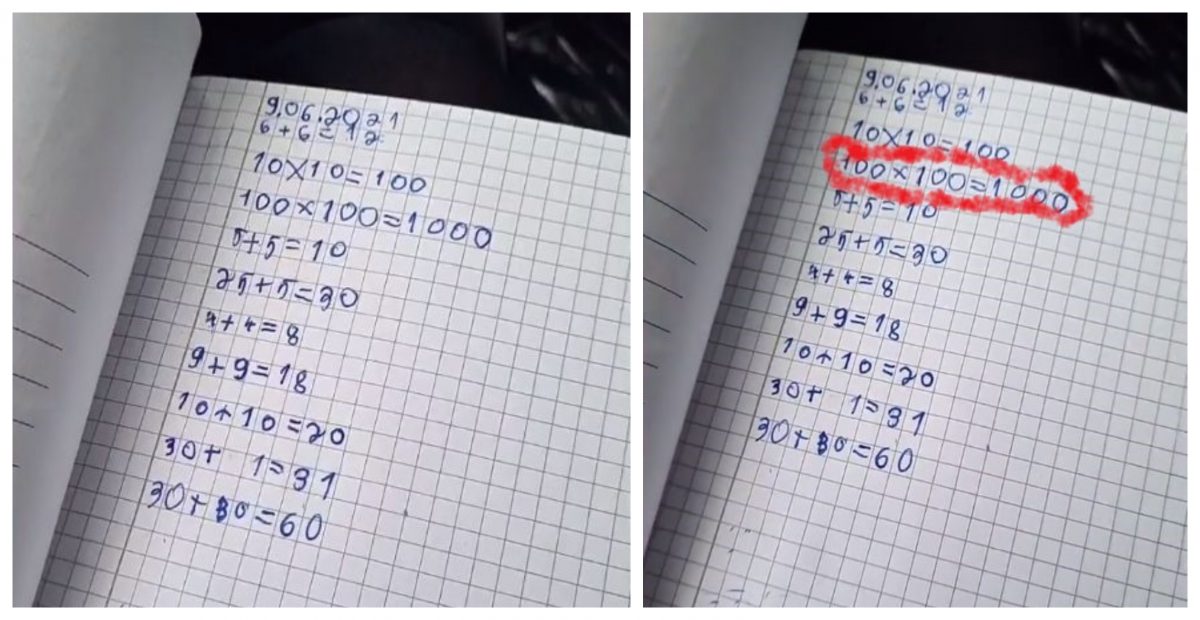 9.06.2021
6+6=12
10×10=100
100×100=1000
5+5=10
25+5=30
4+4=8
9+9=18
10+10=20
30+ 1=31
30+30=60
9.06.2021
6+6=12
10×10=100
100×100=1000
5+5=10
25+5=30
4+4=8
9+9=18
10+10=20
30+ 1=31
30+30=60